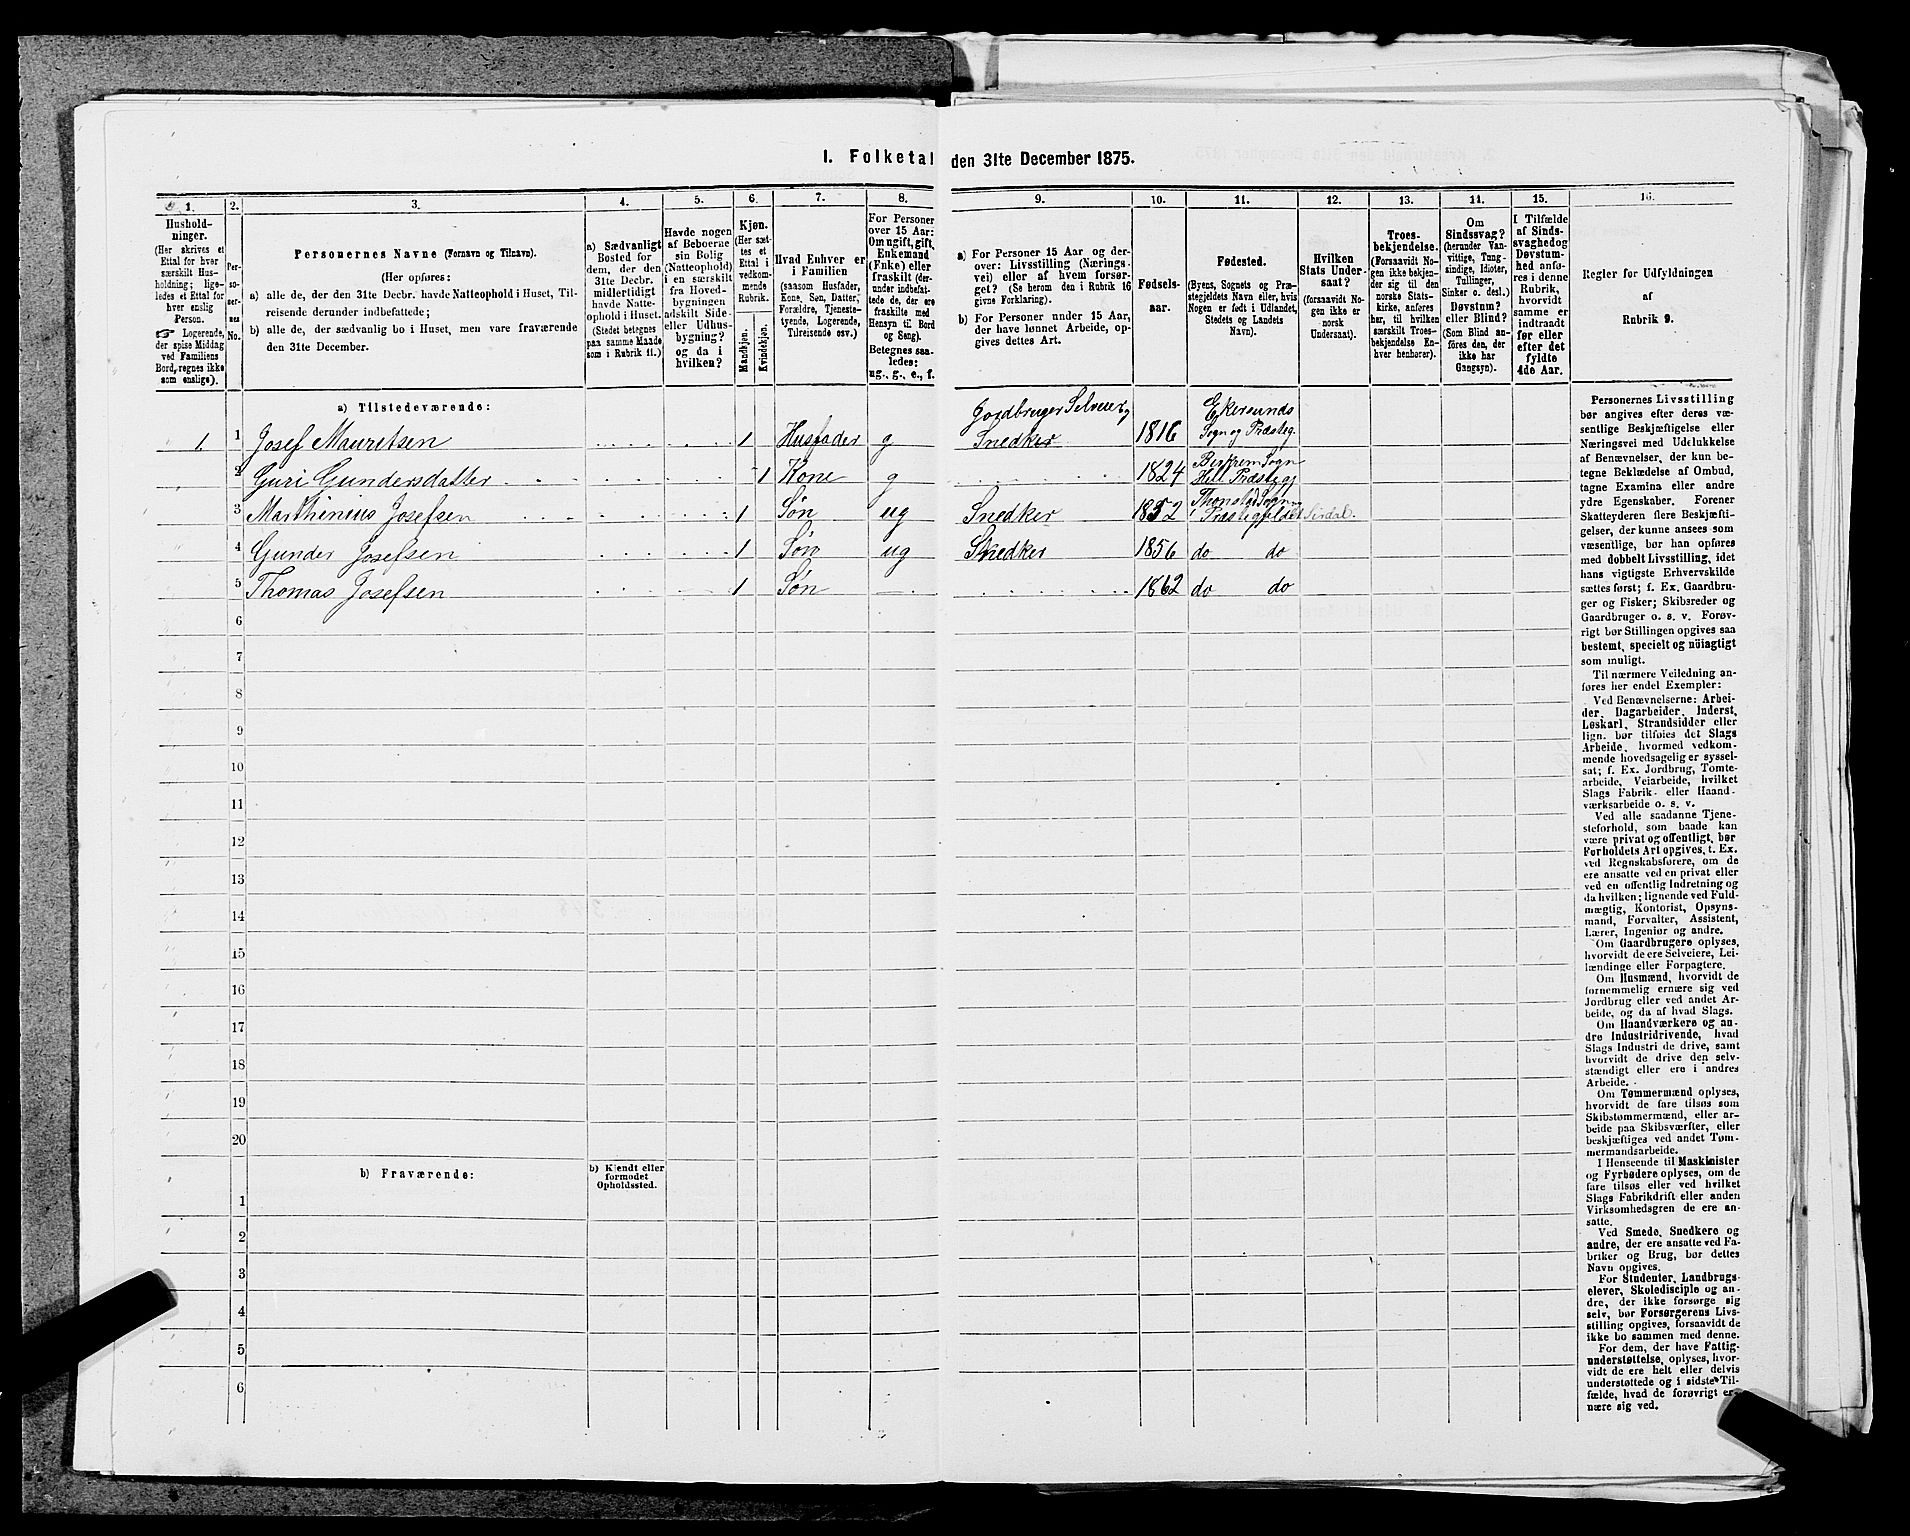 I. Folketal den 31te December 1875.
1. 2. 3. 4. 5. 6. 7. 8. 9. 10. 11. 12. 13. 14. 15. 16.
Hushold-
ninger.
(Her skrives et
Ettal for hver
særskilt Hus-
holdning; lige-
ledes et Ettal for
hver enslig
Person.
☞ Logerende,
der spise Middag
ved Familiens
Bord, regnes ikke
som enslige).
Per-
so-
ner-
nes
No.
Personernes Navne (Fornavn og Tilnavn).
(Her opføres:
a) alle de, der den 31te Decbr. havde Natteophold i Huset, Til-
reisende derunder indbefattede;
b) alle de, der sædvanlig bo i Huset, men vare fraværende
den 31te December.
a) Sædvanligt
Bosted for
dem, der den
31te Decbr.
midlertidigt
havde Natte-
ophold i Huset.
(Stedet betegnes
paa samme Maade
som i Rubrik 11.)
Havde nogen
af Beboerne
sin Bolig
(Natteophold)
i en særskilt
fra Hoved-
bygningen
adskilt Side-
eller Udhus-
bygning?
og da i
hvilken?
Kjøn.
(Her sæt-
tes et
Ettal i
vedkom-
mende
Rubrik.)
Mandkjøn.
Kvindekjøn.
Hvad Enhver er
i Familien
(saasom Husfader,
Kone, Søn, Datter,
Forældre, Tjeneste-
tyende, Logerende,
Tilreisende osv.)
For Personer
over 15 Aar:
Om ugift, gift,
Enkemand
(Enke) eller
fraskilt (der-
under indbefat-
tede de, der ere
fraskilte med
Hensyn til Bord
og Seng).
Betegnes saa-
ledes:
ug., g., e., f.
a) For Personer 15 Aar og der-
over: Livsstilling (Nærings-
vei) eller af hvem forsør-
get? (Se herom den i Rubrik 16
givne Forklaring).
b) For Personer under 15 Aar,
der have lønnet Arbeide, op-
gives dettes Art.
Fødsels-
aar.
Fødested.
(Byens, Sognets og Præ-
stegjeldets Navn eller, hvis
Nogen er født i Udlandet,
Stedets og Landets
Navn).
Hvilken
Stats Under-
saat?
(forsaavidt No-
gen ikke er
norsk
Undersaat).
Troes-
bekjendelse.
(Forsaavidt No-
gen ikke bekjen-
der sig til den
norske Stats-
kirke, anføres
her, til hvilken
særskilt Troes-
bekjendelse En-
hver henhører).
Om
Sindssvag?
(herunder Van-
vittige, Tung-
sindige, Idioter,
Tullinger,
Sinker o. desl.)
Døvstum?
eller Blind?
(Som Blind an-
føres den, der
ikke har
Gangsyn).
I Tilfælde
af Sinds-
svaghed og
Døvstum-
hed anfø-
res i denne
Rubrik,
hvorvidt
samme er
indtraadt
før eller
efter det
fyldte
4de Aar.
Regler for Udfyldningen
af
Rubrik 9.
a) Tilstedeværende:
1 1 Josef Mauretsen 1 Husfader g Jordbruger Selveier, Snedker 1816 Ekersunds Sogn og Præsteg.
2 Guri Gundersdatter 1 Kone g 1824 Sogn Hell. Præstegj
3 Marthinius Josefsen 1 Søn ug Snedker 1852 Thonstad Sogn Præstegjeldet Sirdal.
4 Gunder Josefsen 1 Søn ug Snedker 1856 do do
5 Thomas Josefsen 1 Søn 1862 do do
6
7
8
9
10
11
12
13
14
15
16
17
18
19
20
b) Fraværende:
b) Kjendt eller
formodet
Opholdssted.
1
2
3
4
5
6
Personernes Livsstilling
bør angives efter deres væ-
sentlige Beskjæftigelse eller
Næringsvei med Udelukkelse
af Benævnelser, der kun be-
tegne Beklædelse af Ombud,
tagne Examina eller andre
ydre Egenskaber. Forener
Skatteyderen flere Beskjæfti-
gelser, der kunne ansees som
væsentlige, bør han opføres
med dobbelt Livsstilling, idet
hans vigtigste Erhvervskilde
sættes først; f. Ex. Gaardbru-
ger og Fisker; Skibsreder og
Gaardbruger o. s. v. Forøv-
rigt bør Stillingen opgives saa
bestemt, specielt og nøiagtigt
som muligt.
Til nærmere Veiledning an-
føres her endel Exempler:
Ved Benævnelserne: Arbei-
der, Dagarbeider, Inderst,
Løskarl, Strandsidder eller
lign. bør tilføies det Slags
Arbeide, hvormed vedkom-
mende hovedsagelig er syssel-
sat; f. Ex. Jordbrug, Tomte-
arbeide, Veiarbeide, hvilket
Slags Fabrik- eller Haand-
værksarbeide o. s. v.
Ved alle saadanne Tjene-
steforhold, som baade kan
være privat og offentligt, bør
Forholdets Art opgives, t. Ex.
ved Regnskabsførere, om de
ere ansatte ved en privat eller
ved en offentlig Indretning og
da hvilken; lignende ved Fuld-
mægtig, Kontorist, Opsyns-
mand, Forvalter, Assistent,
Lærer, Ingeniør og andre.
Om Gaardbrugere oplyses,
hvorvidt de ere Selveiere, Lei-
lændinge eller Forpagtere.
Om Husmænd, hvorvidt de
fornemmelig ernære sig ved
Jordbrug eller ved andet Ar-
beide, og da af hvad Slags.
Om Haandværkere og an-
dre Industridrivende, hvad
Slags Industri de drive, samt
hvorvidt de drive den selv-
stændigt eller ere i andres
Arbeide.
Om Tømmermænd oplyses,
hvorvidt de fare tilsøs som
Skibstømmermænd, eller ar-
beide paa Skibsværfter, eller
beskjæftiges ved andet Tøm-
mermandsarbeide.
I Henseende til Maskinister
og Fyrbødere oplyses, om de
fare tilsøs eller ved hvilket
Slags Fabrikdrift eller anden
Virksomhedsgren de ere an-
satte.
Ved Smede, Snedkere og
andre, der ere ansatte ved Fa-
briker og Brug, bør dettes
Navn opgives.
For Studenter, Landbrugs-
elever, Skoledisciple og an-
dre, der ikke forsørge sig
selv, bør Forsørgerens Livs-
stilling opgives, forsaavidt de
ikke bo sammen med denne.
For dem, der have Fattig-
understøttelse, oplyses, hvor-
vidt de ere helt eller delvis
understøttede og i sidste Til-
fælde, hvad de forøvrigt er-
nære sig ved.